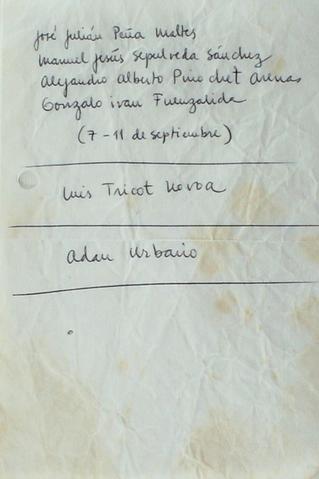 José Julián Peña Maltes
Manuel Jesús Sepulveda Sánchez
Alejandro Alberto Pinochet Arenas
Gonzalo ivan Fuenzalida
(7-11 de septiembre)
Luis Tricot Novoa
Adan Urbano